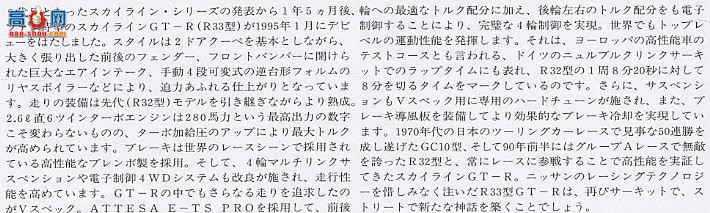 となったスカイライン・シリーズの発表から1年5ヵ月後、
のスカイラインGT-R(R33型)が1995年1月にデビ
ューをはたしました。スタイルは2ドアクーペを基本としながら、
大きく張り出した前後のフェンダー、フロントバンパーに開けら
れた巨大なエアインテーク、手動4段可変式の逆台形フォルムの
リヤスポイラーなどにより、迫力あふれる仕上がりとなっていま
す。走りの装備は先代(R32型)モデルを引き継ぎながらより熟成。
2.6ℓ直6ツインターボエンジンは280馬力という最高出力の数字
こそ変わらないものの、ターボ加給圧のアップにより最大トルク
が高められています。ブレーキは世界のレースシーンで採用されて
いる高性能なブレンボ製を採用。そして、4輪マルチリンクサ
スペンションや電子制御4WDシステムも改良が施され、走行性
能を高めています。GT-Rの中でもさらなる走りを追求したの
がVスペック。ATTESA E-TS PROを採用して、前後
輪への最適なトルク配分に加え、後輪左右のトルク配分をも電子
制御することにより、完璧な4輪制御を実現。世界でもトップレ
ベルの運動性能を発揮します。それは、ヨーロッパの高性能車の
テストコースとも言われる、ドイツのニュルブルクリンクサーキ
ットでのラップタイムにも表れ、R32型の1周8分20秒に対して
8分を切るタイムをマークしているのです。さらに、サスペンシ
ョンもVスペック用に専用のハードチューンが施され、また、ブ
レーキ導風板を装備してより効果的なブレーキ冷却を実現してい
ます。1970年代の日本のツーリングカーレースで見事な50連勝を
成し遂げたGC10型、そして90年前半にはグループAレースで無敵
を誇ったR32型と、常にレースに参戦することで高性能を実証し
てきたスカイラインGT-R。ニッサンのレーシングテクノロジー
を惜しみなく注いだR33型GT-Rは、再びサーキットで、ス
トリートで新たな神話を築くことでしょう。